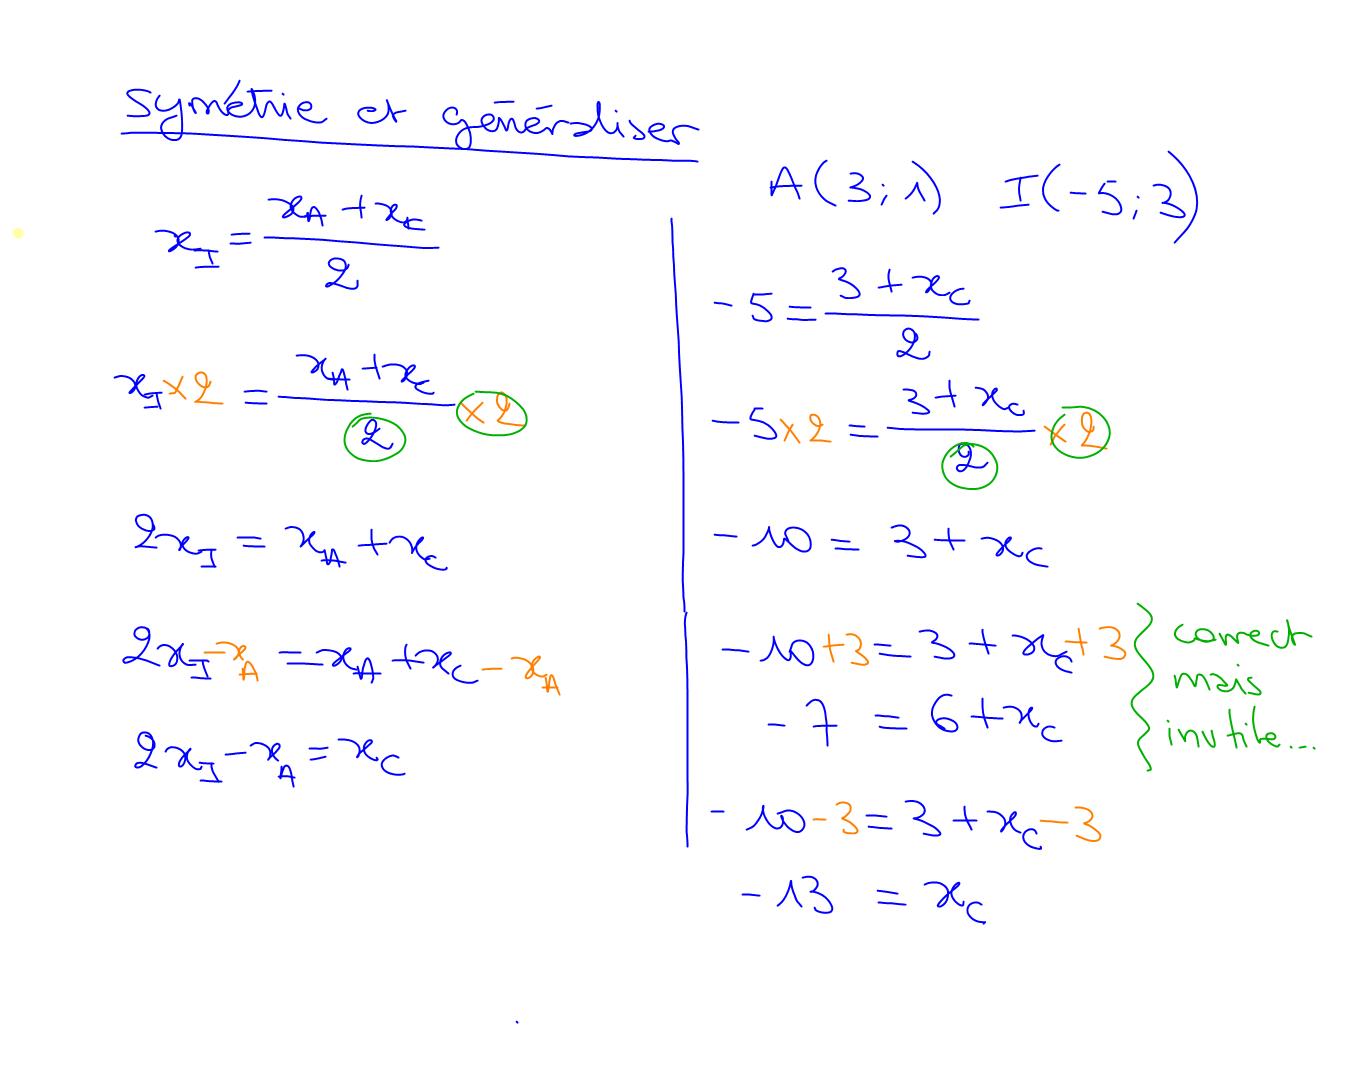 Symétrie et généraliser
x_I = (x_A + x_C)/2
x_I × 2 = (x_A + x_C)/2 × 2
2x_I = x_A + x_C
2x_I - x_A = x_A + x_C - x_A
2x_I - x_A = x_C
A(3;1) I(-5;3)
-5 = (3 + x_C)/2
-5 × 2 = (3 + x_C)/2 × 2
-10 = 3 + x_C
-10 + 3 = 3 + x_C + 3
-7 = 6 + x_C
correct
mais
inutile...
-10 - 3 = 3 + x_C - 3
-13 = x_C